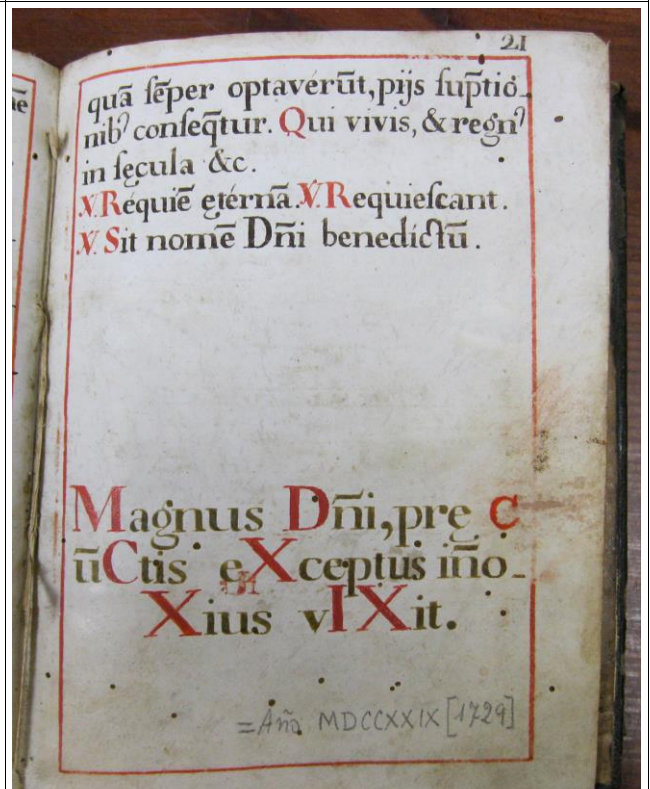 21
quā ſēper optaverūt, pijs ſup̄tio-
nib⁹ conſeq̄tur. Qui vivis, & regn⁹
in ſęcula &c.
℣. Réquiē ętérnā ℣. Requieſcant.
℣. Sit nomē Dn̄i benedictū.
Magnus Dn̄i, prę C
ūCtis eXceptus in̄o-
Xius vIXit.
= Año MDCCXXIX [1729]